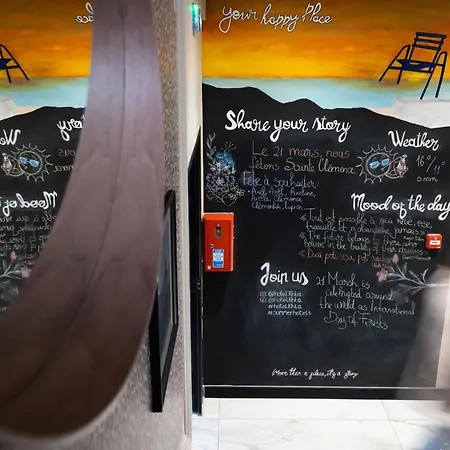 Your happy Place
Share your story
Le 21 mars, nous
fêtons Sainte Clémence
Fête à souhaiter
Weather
16° 11°
0 mm
Mood of the day
« Tout est possible à qui rêve, ose,
travaille et n'abandonne jamais »
« The future belongs to those who
believe in the beauty of their dreams »
Join us
@hotelkhla
@hotelkhla
#summerhotels
21 March is
celebrated around
the world as International
Day of Forests
More than a place, it's a story